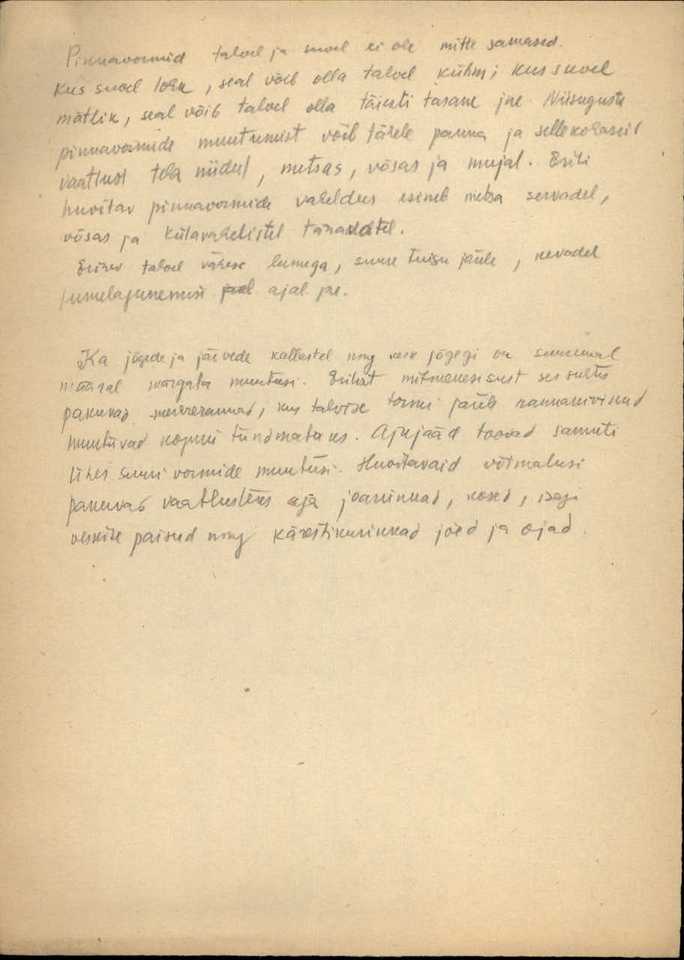 Pinnavormid talvel ja suvel ei ole mitte samased.
Kus suvel lohk, seal võib olla talvel kühm; kus suvel
mätlik, seal võib talvel olla täiesti tasane jne. Niisuguste
pinnavormide muutumist võib tähele panna ja sellekohaseid
vaatlusi teha niidul, metsas, võsas ja mujal. Eriti
huvitav pinnavormide vaheldus esineb metsa servadel,
võsas ja külavahelistel tänavatel.
talvel vähese lumega, suure tuisu järele, kevadel
lumelagunemise ajal jne.
Ka jõgede ja järvede kallastel ning jõgegi on suuremal
määral märgata muutusi. Erilist mitmekesisust ses suhtes
pakuvad mererannad, kus talvise tormi järele rannakivinud
muutuvad koguni tundmatuks. Ajujääd toovad samuti
ühes suuri vormide muutusi. Huvitavaid võimalusi
pakuvad vaatlusteks ka joarinnad, kosed,
veskite paisud ning kärestikurikkad jõed ja ojad.